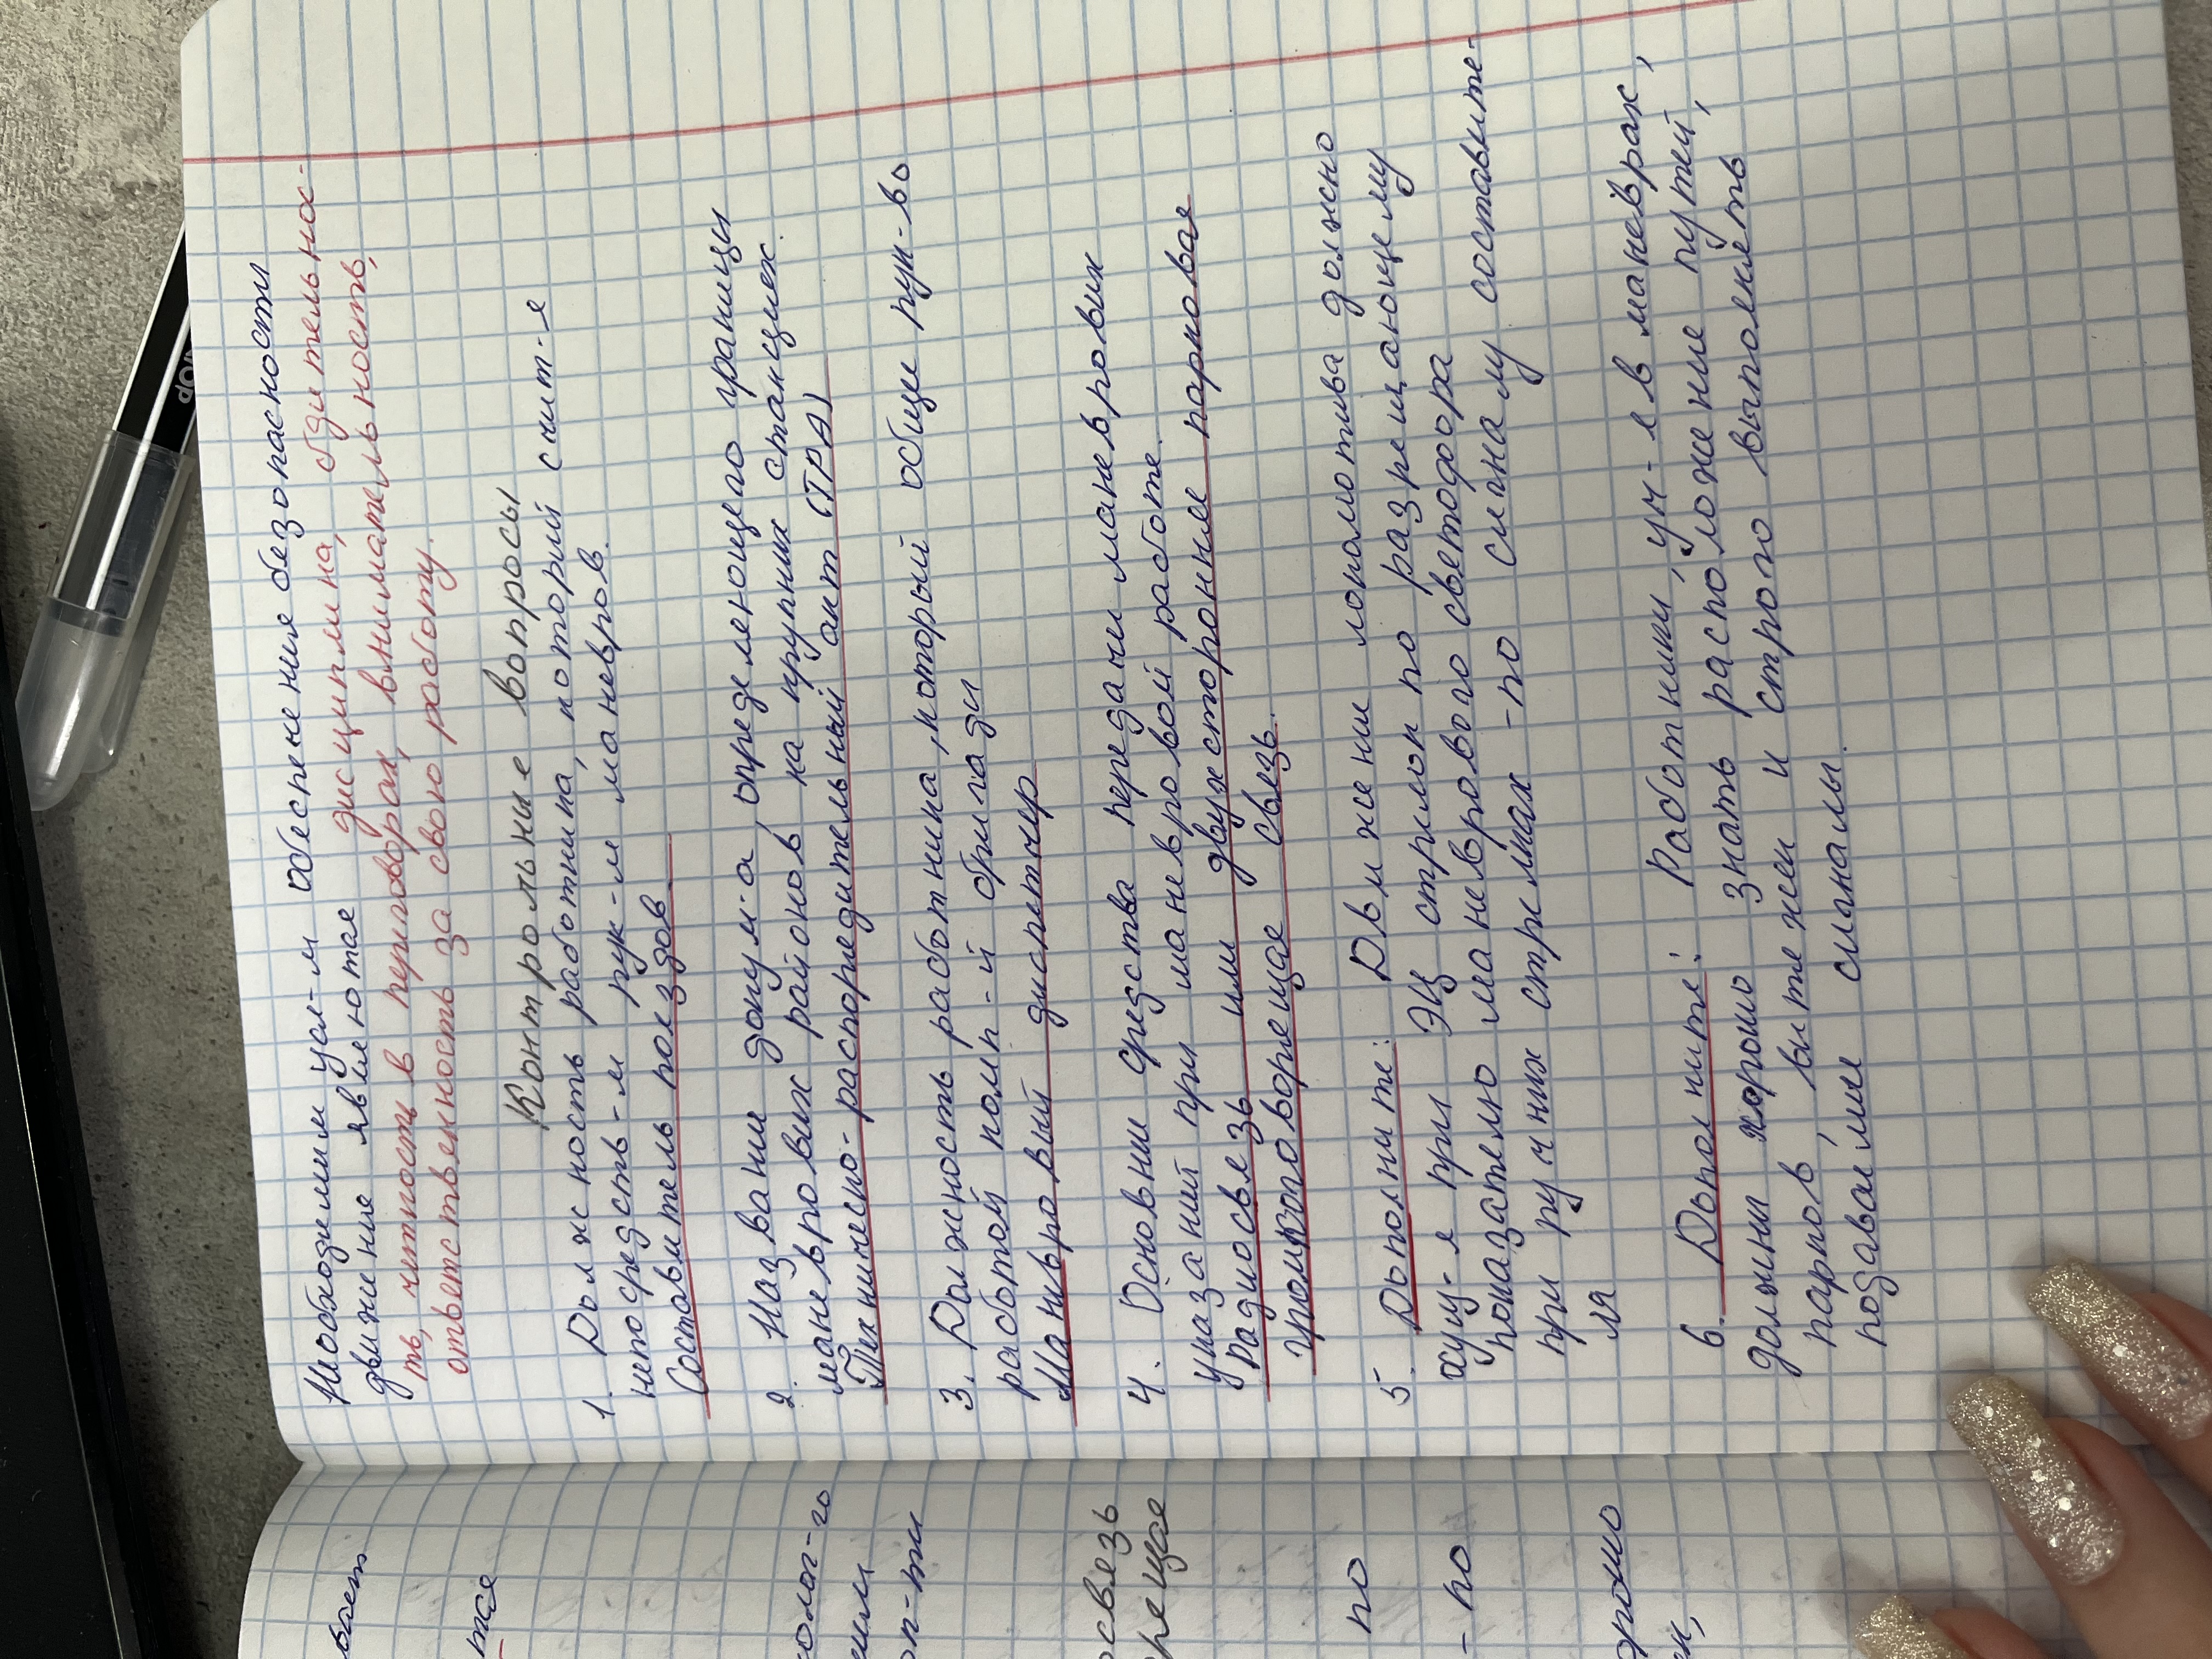 Необходимым усл-м обеспечения безопасности
движения являются дисциплина, бдительнос-
ть, четкость в переговорах, внимательность,
ответственность за свою работу.
Контрольные вопросы
1. Должность работника, который счит-я
непосредств-м рук-м маневров.
Составитель поездов
2. Название докум-а, определяющего границы
маневровых районов на крупных станциях.
Техническо-распорядительный акт (ТРА)
3. Должность работника, который общее рук-во
работой комп-й бригады
Маневровый диспетчер
4. Основные средства передачи маневровых
указаний при маневровой работе.
Радиосвязь или двухсторонняя парковая
громкоговорящая связь.
5. Дополните: Движение локомотива должно
осущ-я при ЭЦ стрелок по разрешающему
показателю маневрового светофора
при ручных стрелках - по сигналу составите-
ля
6. Дополните: Работники, уч-я в маневрах,
должны хорошо знать расположение путей,
парков, вытяжей и строго выполнять
подаваемые сигналы.
бает
тся
олог-го
ции
оп-ти
освязь
рящая
по
- по
орошо